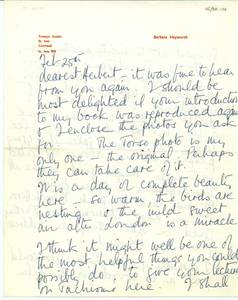 Trewyn Studio
St. Ives
Cornwall
Barbara Hepworth
Feb 25th
dearest Herbert – it was fine to hear
from you again. I should be
most delighted if your introduction
to my book was reproduced again
& I enclose the photos you ask
for. The Torso photo is my
only one – the original. Perhaps
they can take care of it.
It is a day of complete beauty
here – so warm, the birds are
nesting & the mild sweet
air after London is a miracle
I think it might well be one of
the most helpful things you could
possibly do, to give your lecture
on here. I shall